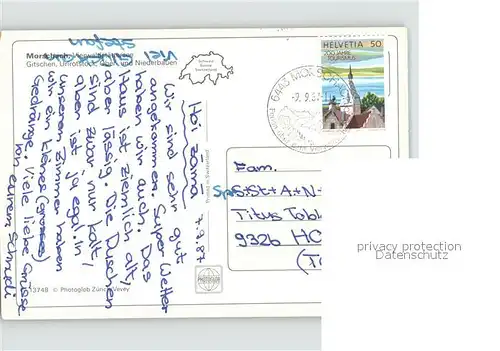 Morschach, Vierwaldstättersee
Gitschen, Urirotstock, und Niederbauen
Hoi zämä 7.9.87
Wir sind sehr gut
angekommen. Super Wetter
haben wir auch. Das
Haus ist ziemlich alt,
aber lässig. Die Duschen
sind zwar nur kalt,
aber ist ja egal. In
unserem Zimmer haben
wir ein kleines (grosses)
Gedränge. Viele liebe Grüsse
von eurem
Stefan
HELVETIA 50
200 JAHRE
TOURISMUS
6443 MORSCHACH
-9.9.87
Printed in Switzerland
PHOTOGLOB
Fam.
S.St+A+N-
Titus Tobl
9326 HO
(T
13748 © Photoglob Zürich/Vevey
privacy protection
Datenschutz